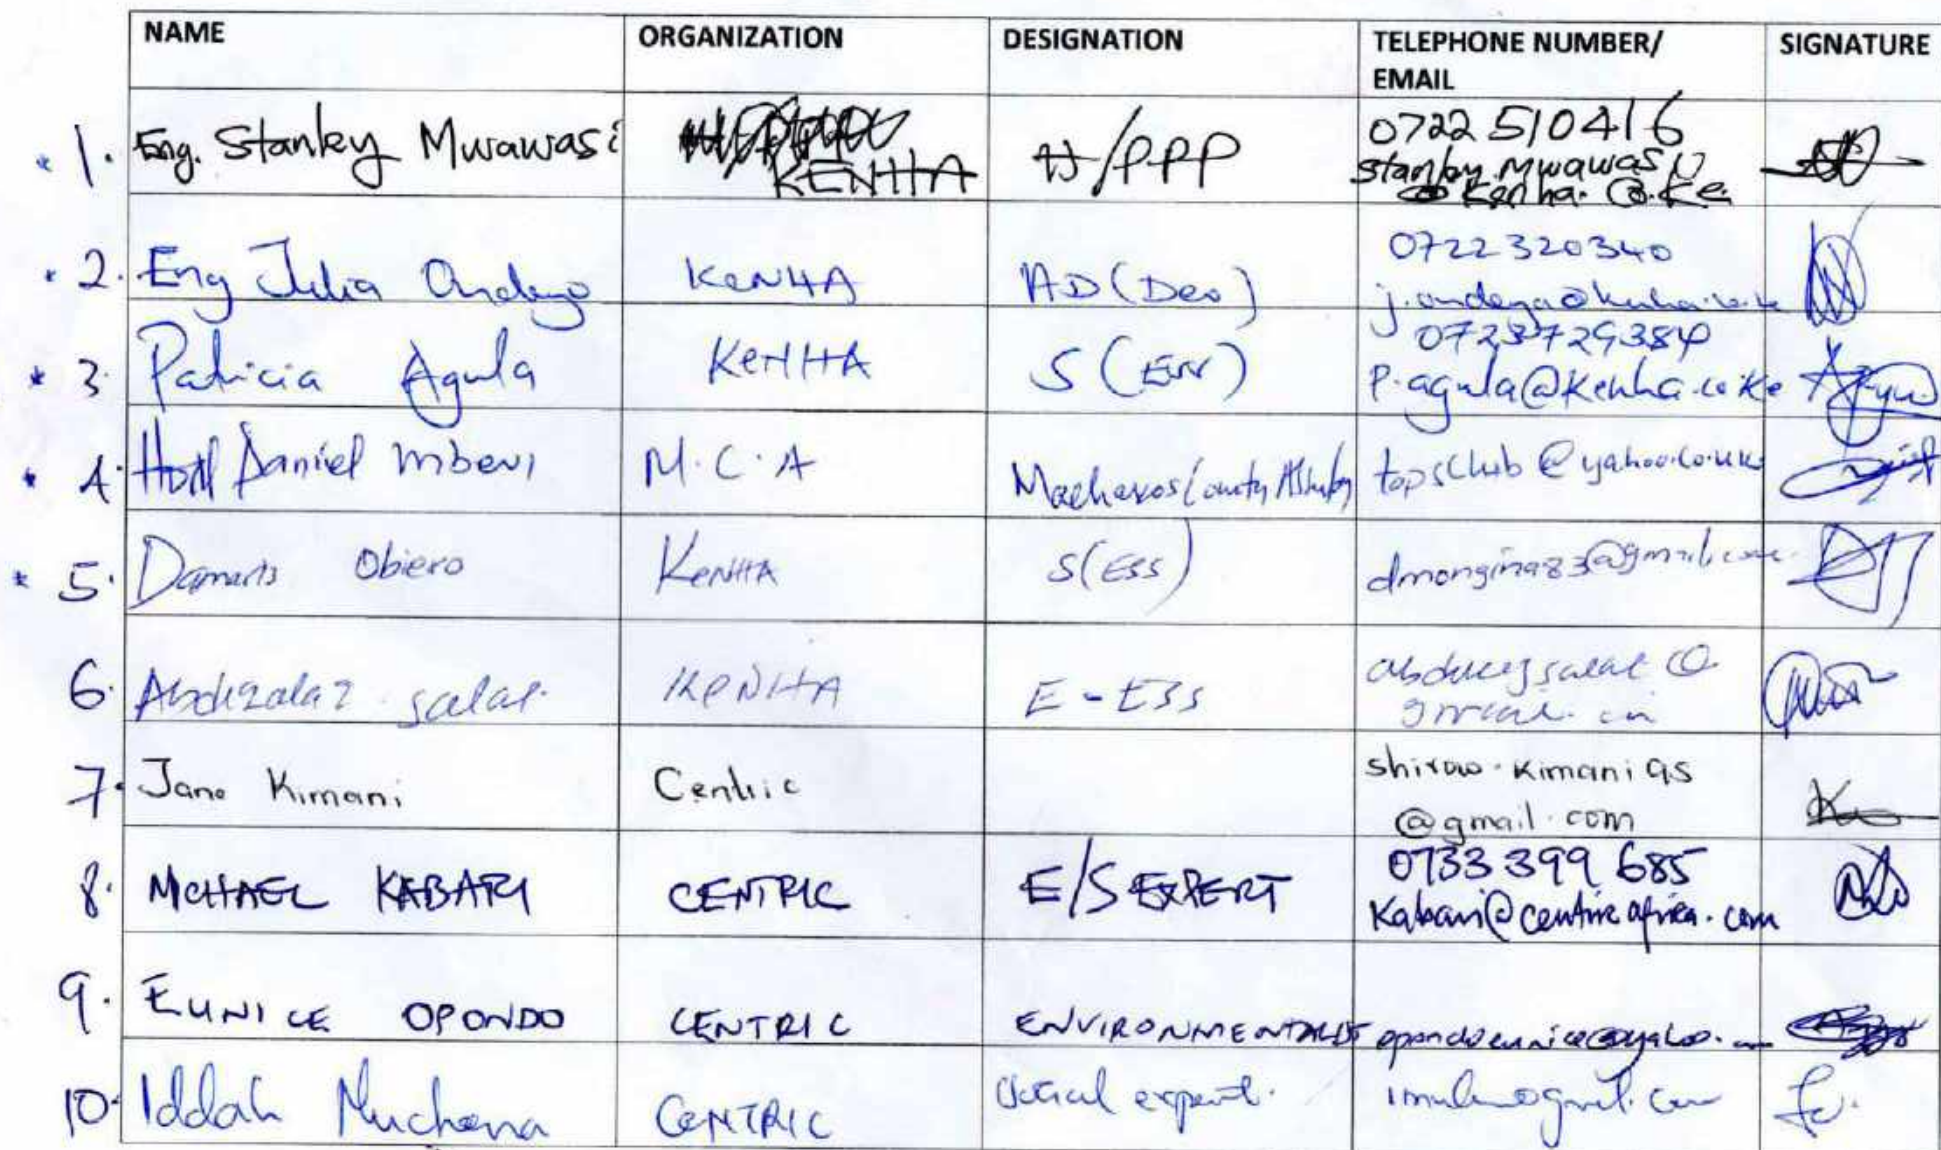 NAME ORGANIZATION DESIGNATION TELEPHONE NUMBER/ EMAIL SIGNATURE
1. Eng. Stanley Mwawasi KENHA H/PPP 0722 510416
stanley.mwawasi
@kenha.co.ke
2. Eng Julia Ondeyo KeNHA AD (Dev) 0722320340
3. Patricia Agula KeNHA S (Env) 0723729384
p.agula@kenha.co.ke
4. Hon Daniel Mbevi M.C.A Machakos County Assembly topsclub@yahoo.co.uk
5. Damaris Obiero KeNHA S(ESS) dmongina83@gmail.com
6. Salat KeNHA E-ESS
7. Jane Kimani Centric shirow.kimani95
@gmail.com
8. MICHAEL KABARI CENTRIC E/S EXPERT 0733 399 685
kabari@centricafrica.com
9. EUNICE OPONDO CENTRIC ENVIRONMENTALIST
10. Iddah CENTRIC expert.